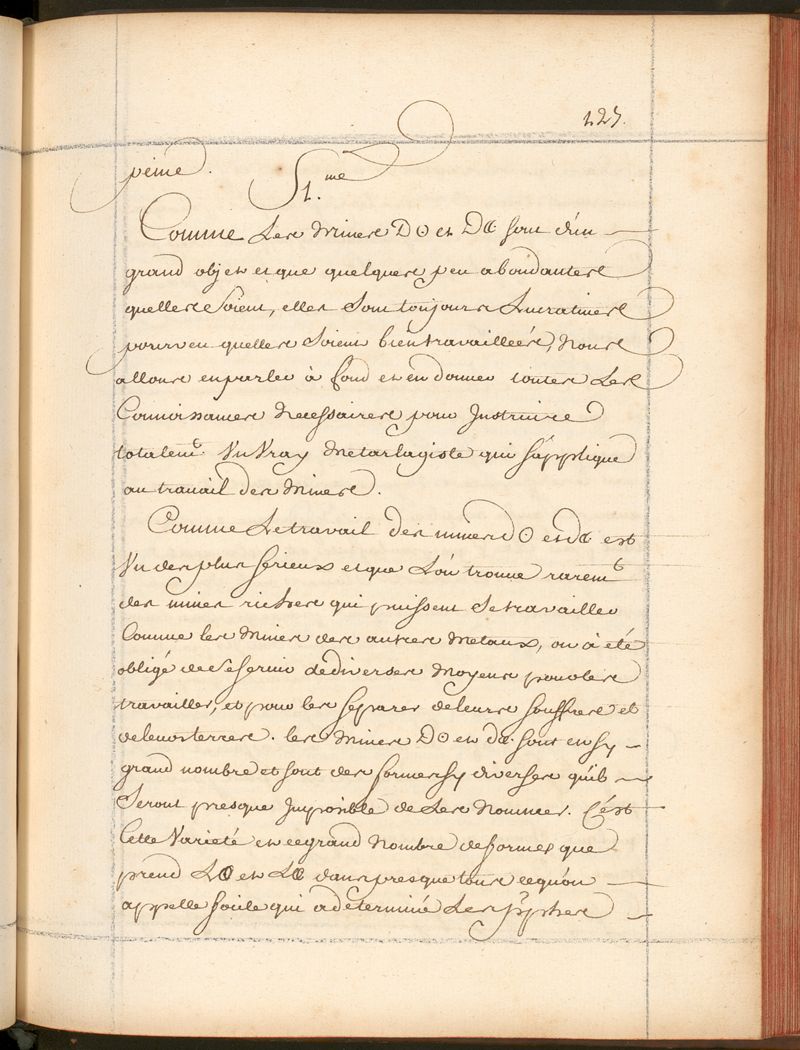 127.
peine.
§ 1.me
Comme Les Mines D☉ et D☾ sont d'un
grand objet et que quelques peu abondantes
quelles Soient, elles Sont toujours Lucratives
pourveu quelles Soient bien travailleés, Nous
allons en parler à fond et en donner toutes Les
Connoissances Necessaires pour Instruire
totalemt. Un Vray Metarlagiste qui s'applique
au travail des Mines.
Comme Le travail des mines d☉ et d☾ est
Un des plus serieux et que L'on trouve raremt
des mines riches qui puissent Se travailler
Comme les Mines des autres Metaux, on à été
obligé de Se servir de diverses Moyens pour les
travailler, et pour les separer de leurs souffres et
de leurs terres. les Mines D☉ et d☾. sont en sy
grand nombre et sont des formes sy diverses quil
Seront presque Imposible de Les Nommer. C'est
Cette Varieté et ce grand Nombre de formes que
prend L☉ et L☾ dans presque tous ce qu'on
appelle soile qui a determiné Les phes